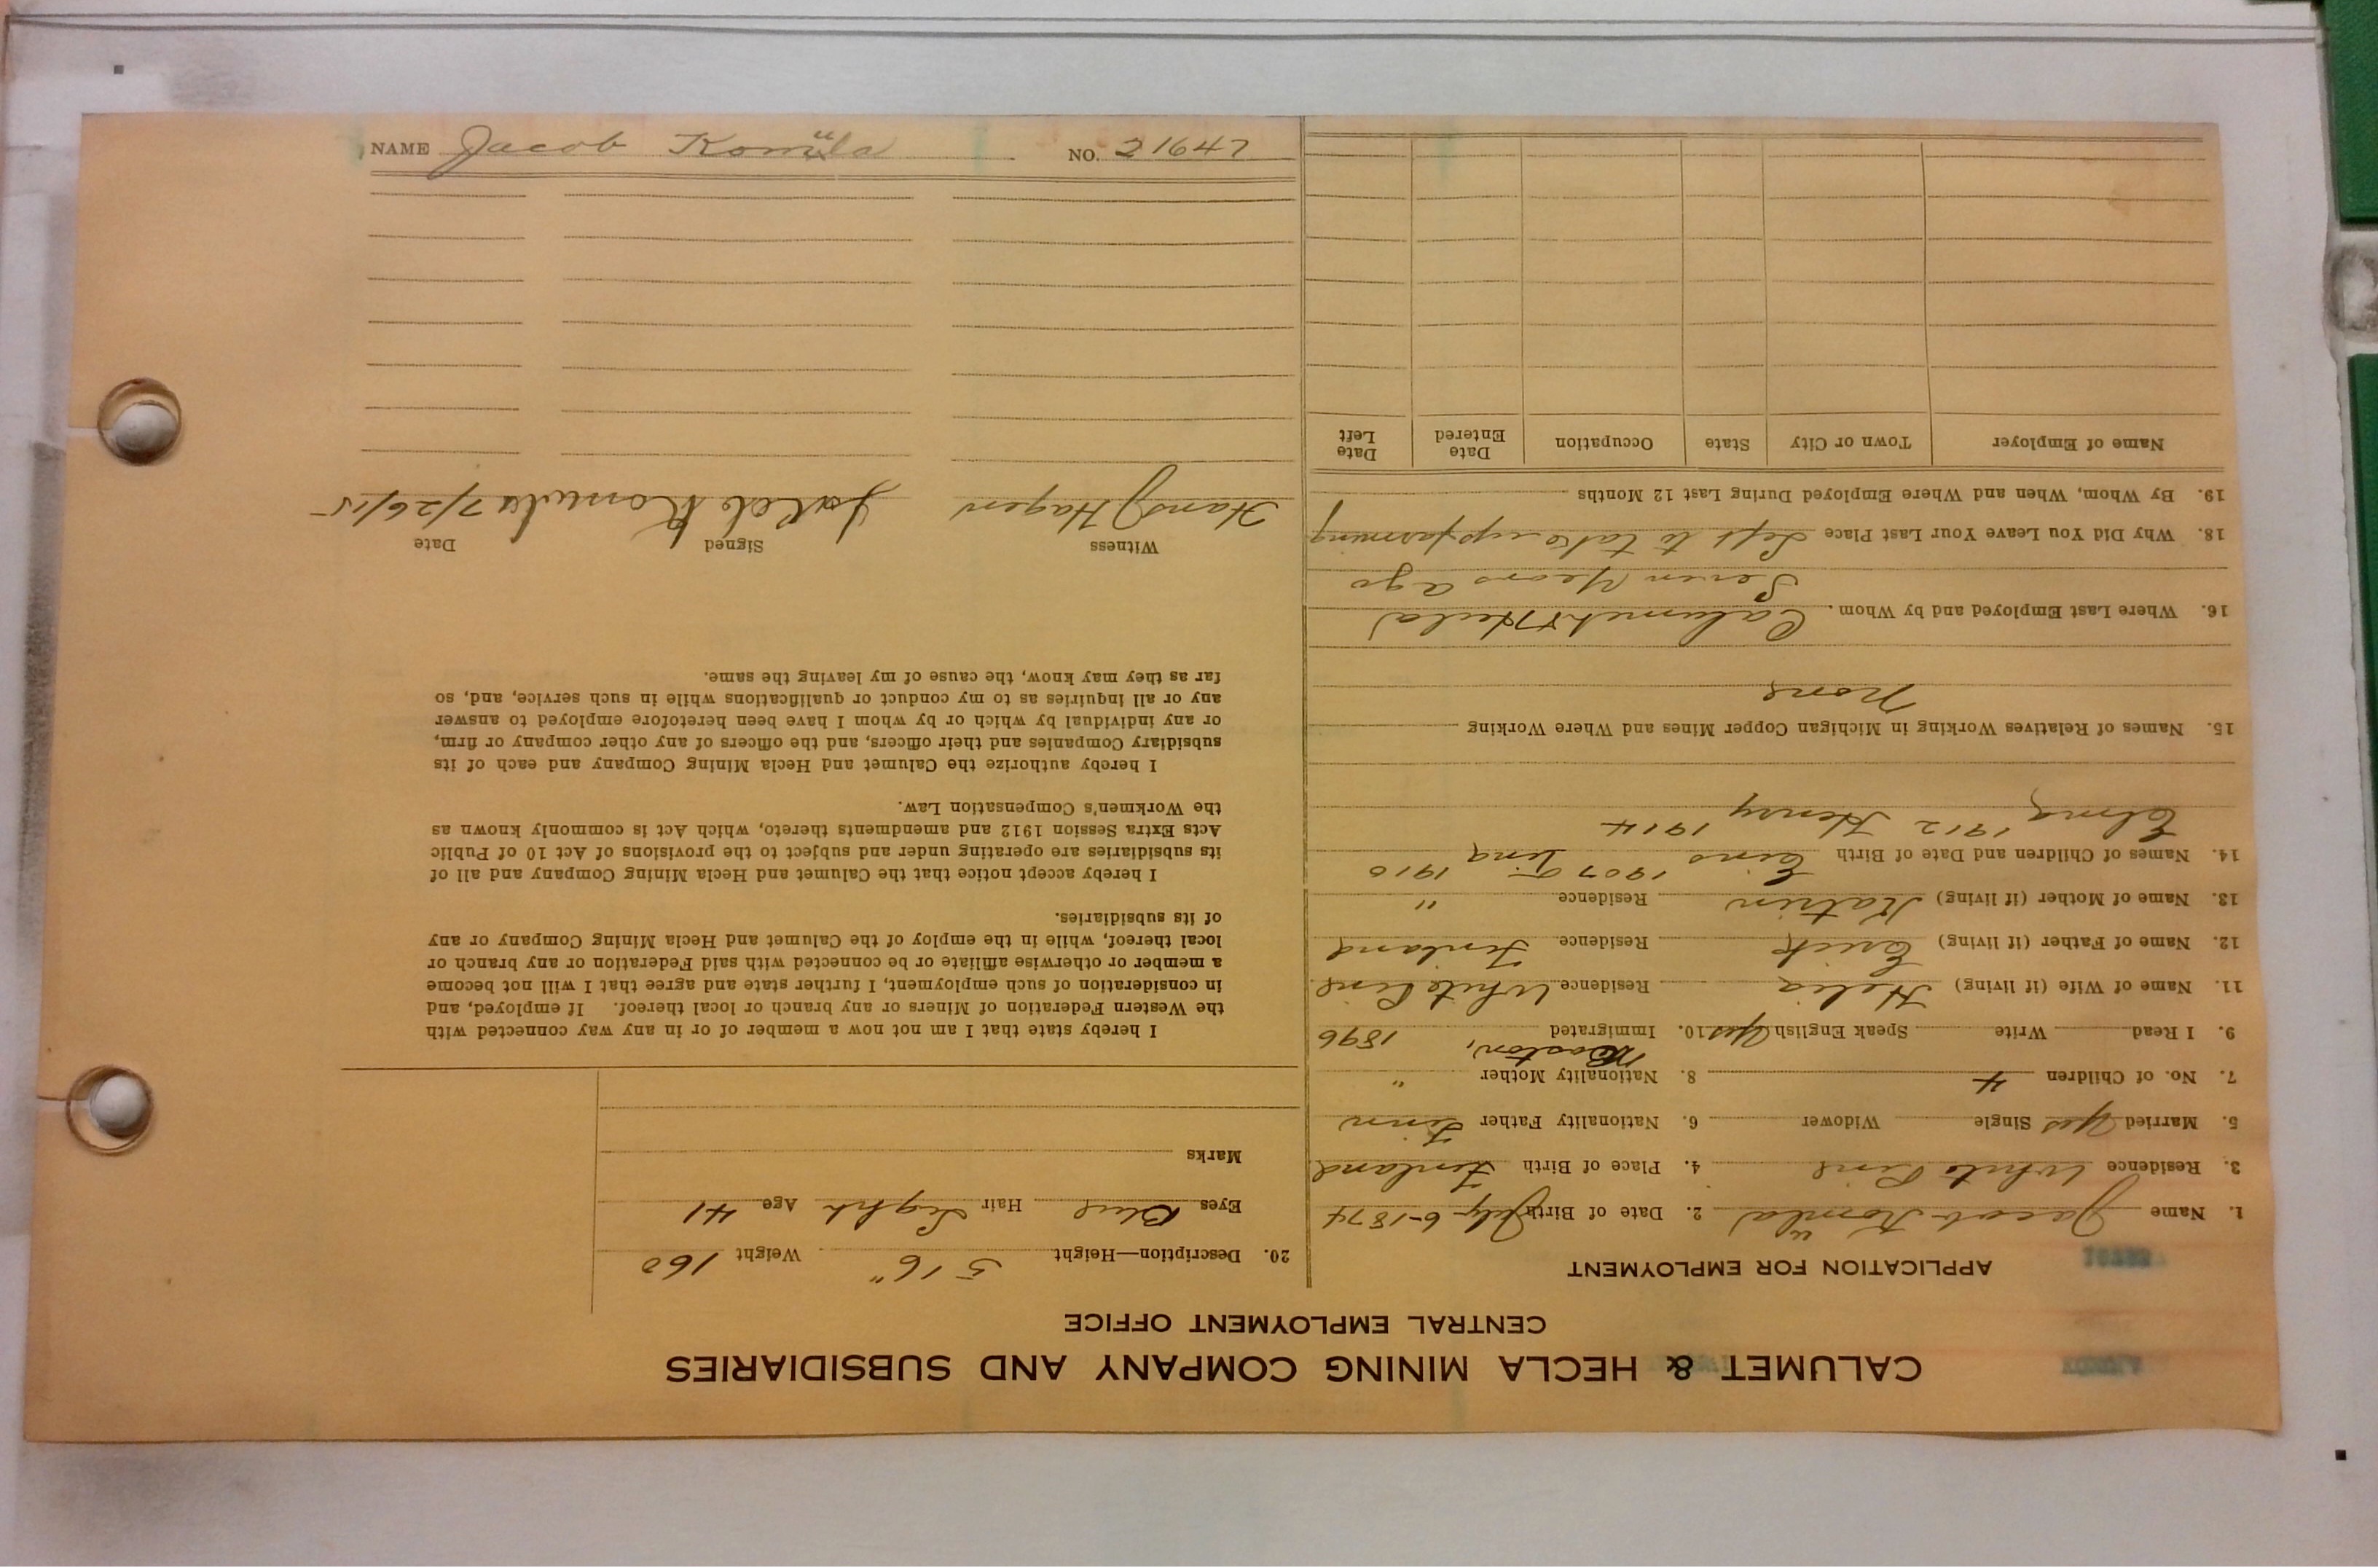 CALUMET & HECLA MINING COMPANY AND SUBSIDIARIES
CENTRAL EMPLOYMENT OFFICE
APPLICATION FOR EMPLOYMENT
1. Name Jacob Komula 2. Date of Birth July-6-1874
3. Residence White Pine 4. Place of Birth Finland
5. Married Yes Single Widower 6. Nationality Father Finn
7. No. of Children 4 8. Nationality Mother "
Boston,
9. I Read Write Speak English Yes 10. Immigrated 1896
11. Name of Wife (if living) Residence White Pine
12. Name of Father (if living) Erick Residence Finland
13. Name of Mother (if living) Katrin Residence "
14. Names of Children and Date of Birth Eino 1907 1910
Elma 1912 Henry 1914
15. Names of Relatives Working in Michigan Copper Mines and Where Working
None
16. Where Last Employed and by Whom. Calumet & Hecla
Seven Years ago
18. Why Did You Leave Your Last Place Left to take up farming
19. By Whom, When and Where Employed During Last 12 Months
Name of Employer Town or City State Occupation Date Entered Date Left
20. Description—Height 5 ' 6" Weight 160
Eyes Blue Hair Light Age 41
Marks
I hereby state that I am not now a member of or in any way connected with
the Western Federation of Miners or any branch or local thereof. If employed, and
in consideration of such employment, I further state and agree that I will not become
a member or otherwise affiliate or be connected with said Federation or any branch or
local thereof, while in the employ of the Calumet and Hecla Mining Company or any
of its subsidiaries.
I hereby accept notice that the Calumet and Hecla Mining Company and all of
its subsidiaries are operating under and subject to the provisions of Act 10 of Public
Acts Extra Session 1912 and amendments thereto, which Act is commonly known as
the Workmen's Compensation Law.
I hereby authorize the Calumet and Hecla Mining Company and each of its
subsidiary Companies and their officers, and the officers of any other company or firm,
or any individual by which or by whom I have been heretofore employed to answer
any or all inquiries as to my conduct or qualifications while in such service, and, so
far as they may know, the cause of my leaving the same.
Witness Signed Date
Hans J Hagen Jacob Komula 7/26/15
NAME Jacob Komula NO. 21647